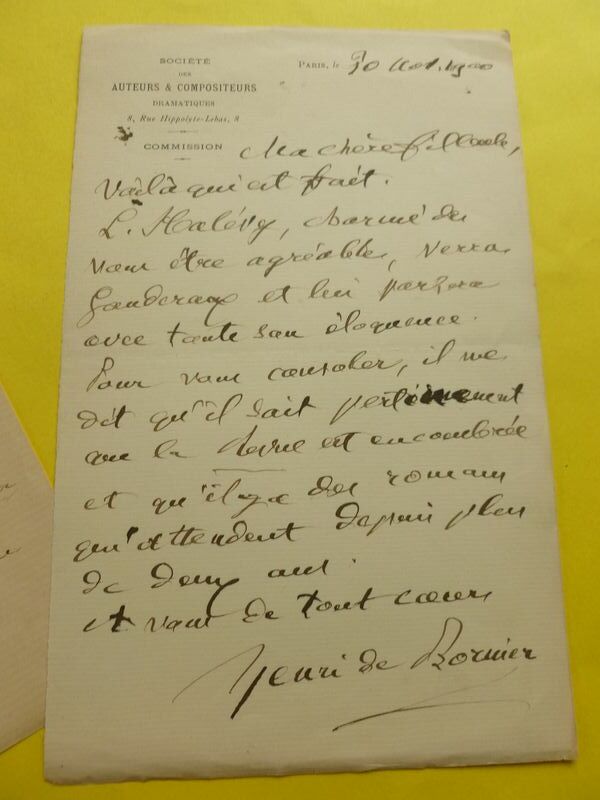 SOCIÉTÉ
DES
AUTEURS & COMPOSITEURS
DRAMATIQUES
8, Rue Hippolyte-Lebas, 8
COMMISSION
PARIS, le 1900
Ma chère filleule,
Voilà qui est fait.
L. Halévy, charmé de
vous être agréable, verra
Ganderax et lui parlera
avec toute son éloquence.
Pour vous consoler, il me
dit qu'il sait pertinemment
que la Revue est encombrée
et qu'il y a des romans
qui attendent depuis plus
de deux ans.
et vous de tout cœur
Henri de Bornier